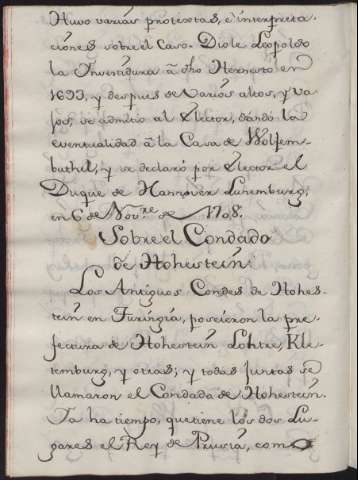 Huvo varias protextas, é interpreta-
ciones sobre el Caso. Diole Leopoldo
la Investidura á dho Hernesto en
1693, y despues de varios altos, y va-
jos, se admitio al Elector, dando la
eventualidad á la Casa de Wolfem-
buthel, y se declaró por Elector el
Duque de Hannover Lunemburg,
en 6 de Nov.re de 1708.
Sobre el Condado
de Hohestein.
Los Antiguos Condes de Hohes-
tein en Turingia, poseieron la pre-
fectura de Hohestein Lohtre, Kle-
temburg, y otras; y todas juntas se
llamaron el Condado de Hohestein.
Ya ha tiempo, que tiene los dos Lu-
gares el Rey de Prusia, como